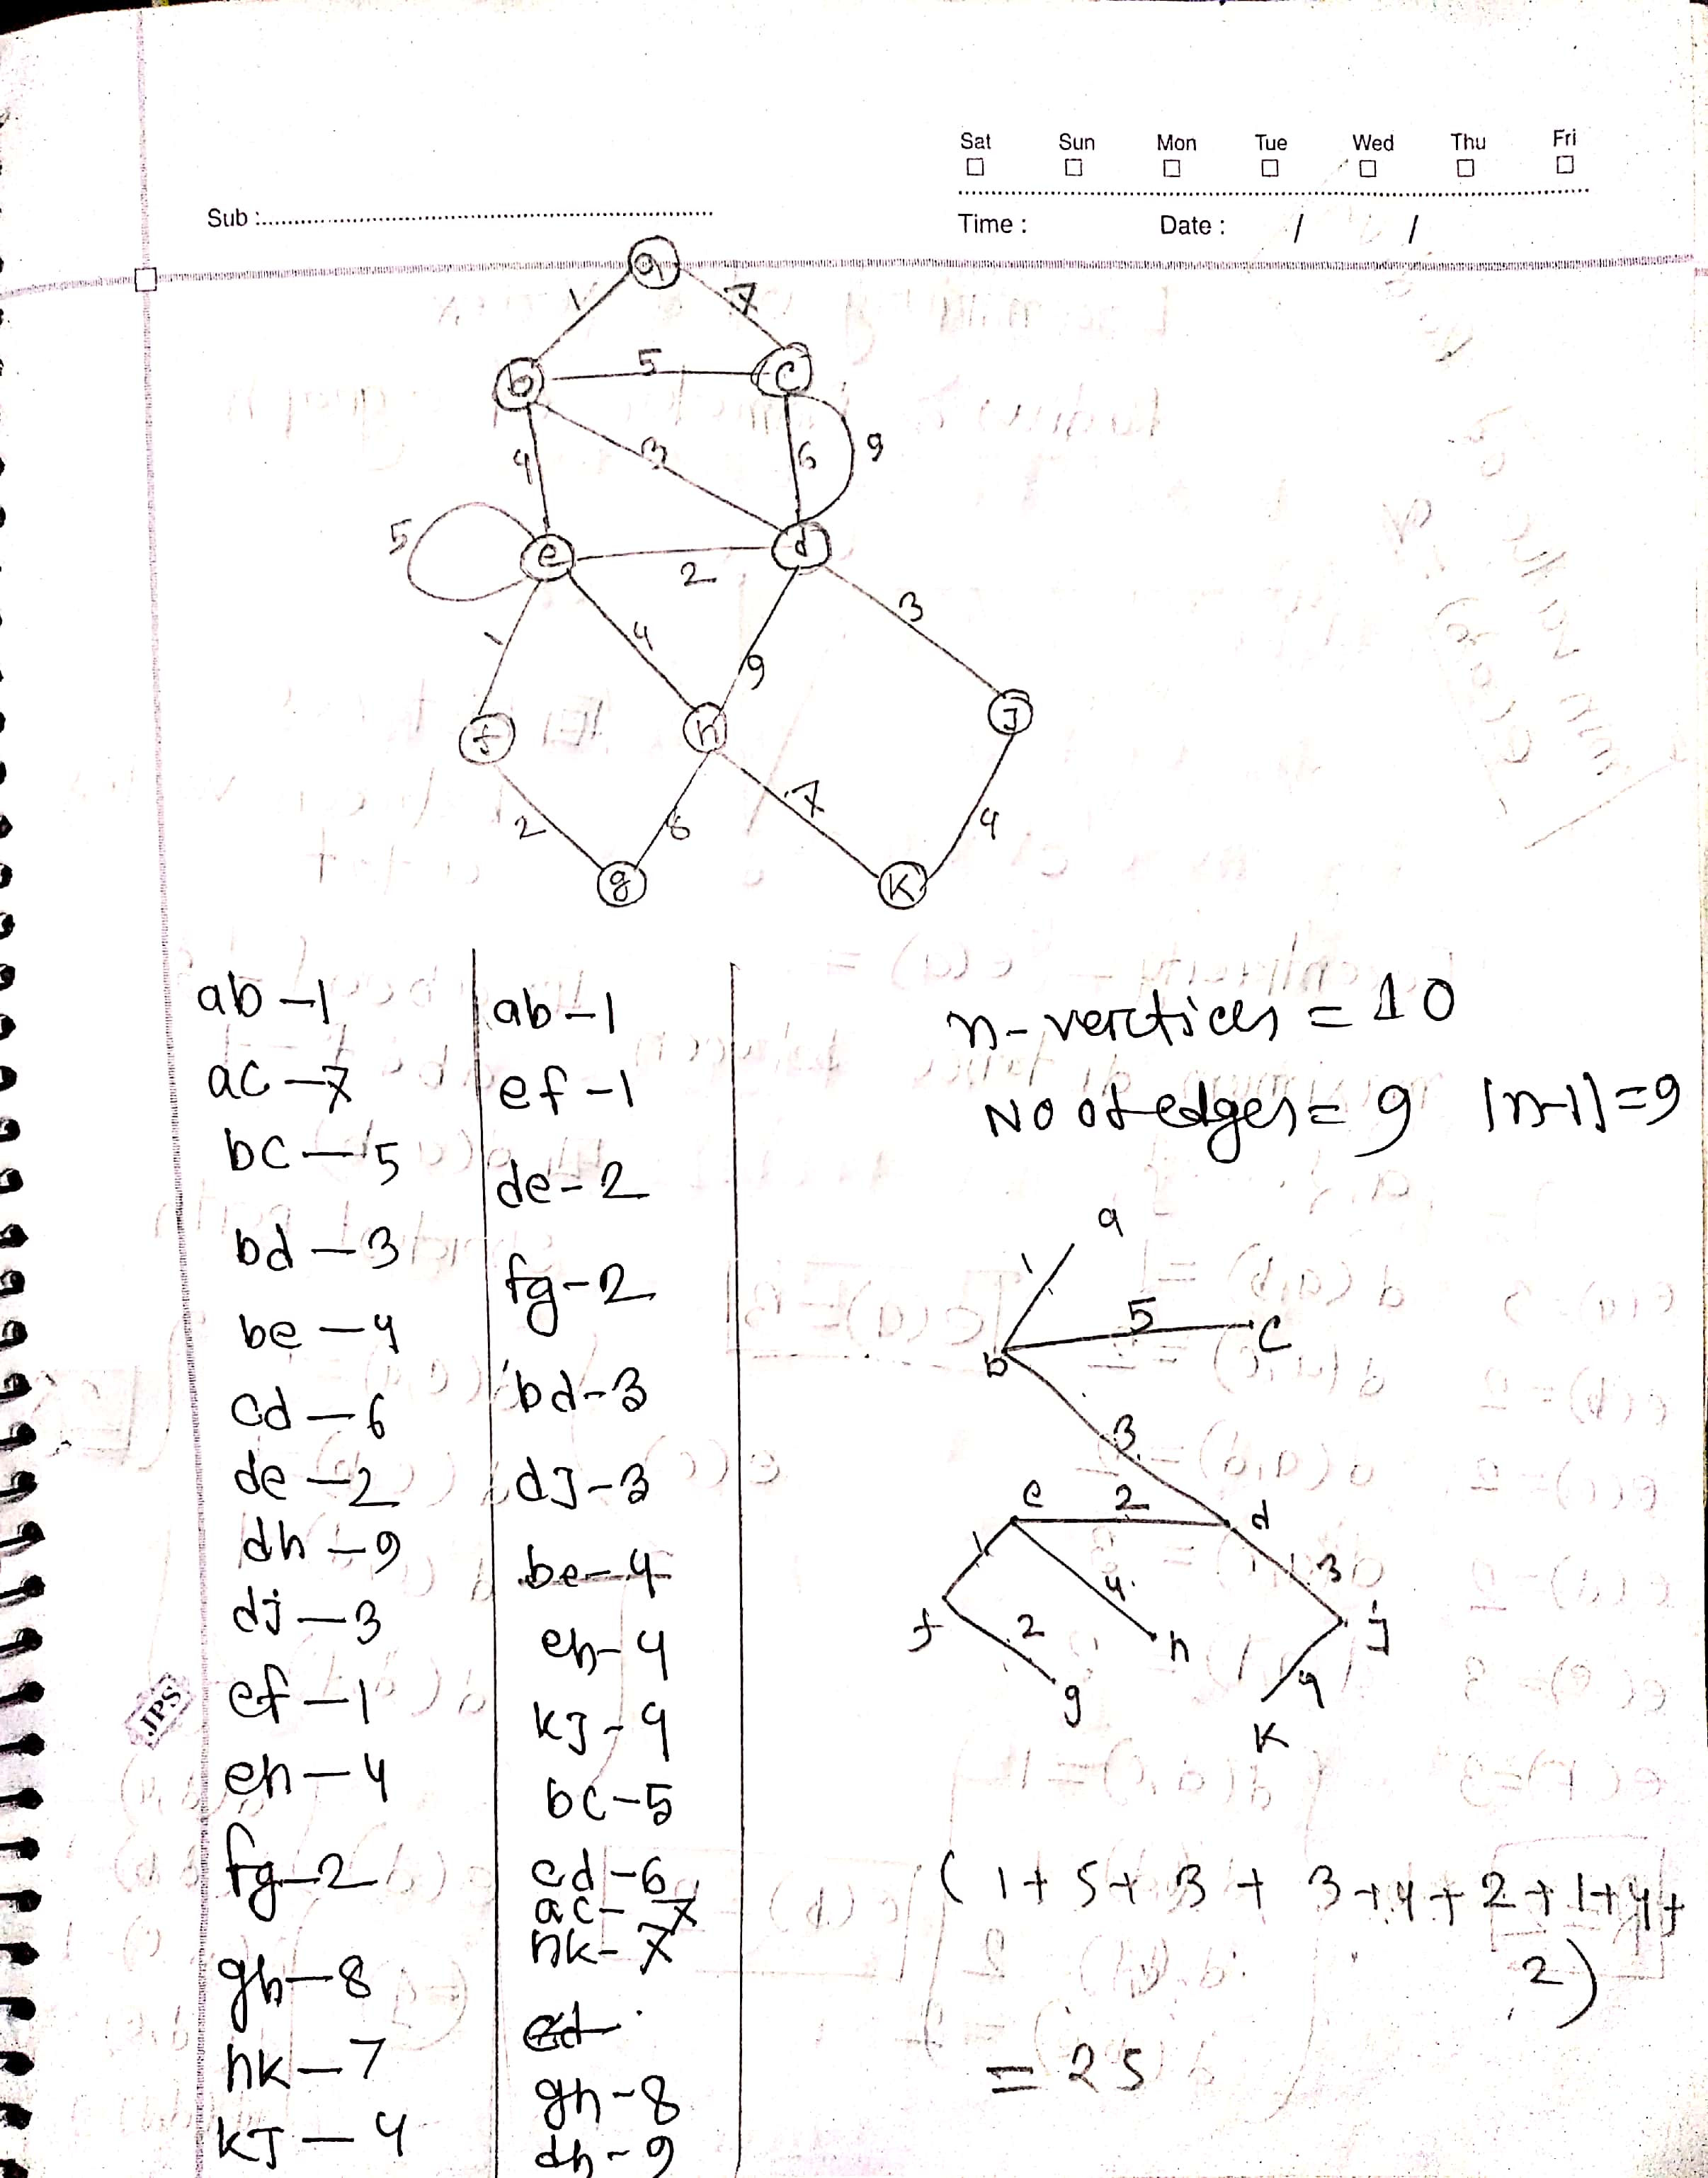 Sat Sun Mon Tue Wed Thu Fri
Sub :
Time : Date : / /
a
1 7
b 5 c
4 3 6 9
5 e 2 d
1 4 9 3
f h J
2 8 7 4
g K
ab-1
ac-7
bc-5
bd-3
be-4
cd-6
de-2
dh-9
dj-3
ef-1
eh-4
fg-2
gh-8
hk-7
KJ-4
JPS
ab-1
ef-1
de-2
fg-2
bd-3
dJ-3
be-4
eh-4
KJ-4
bc-5
cd-6
ac-7
hk-7
cd
gh-8
dh-9
n-verctices = 10
No of edges = 9 |n-1|=9
a
1
b 5 c
3
e 2 d
1 4 3
f 2 h j
g 4
K
(1+5+3+3+4+2+1+4+
2)
= 25